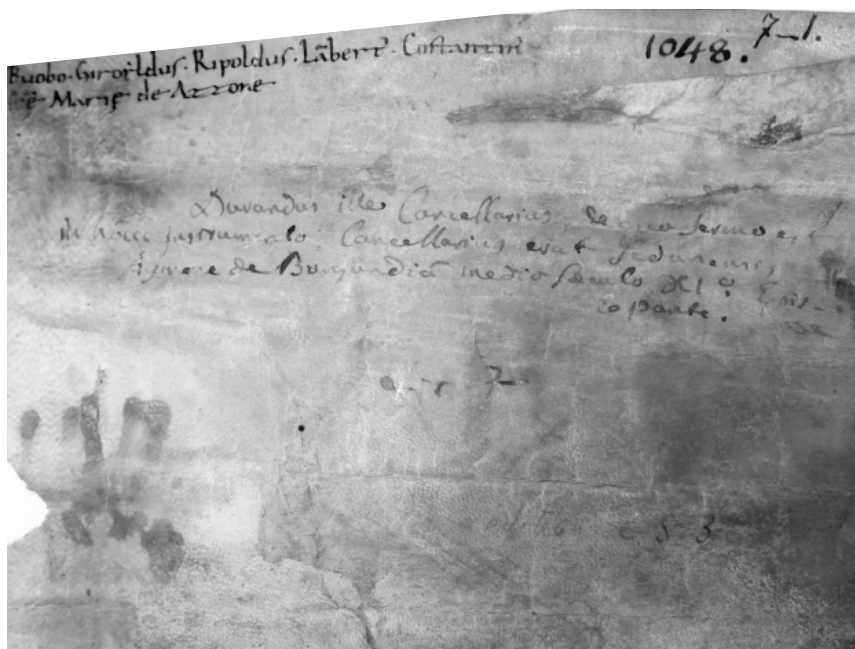 Buobo. Giroldus. Ripoldus. Lãbert. Costantini
Marię de Azzone
1048. 7-1.
Durandus ille Cancellarius, de quo sermo est
in hocce instrumento, Cancellarius erat Sedunensis,
Aymone de Burgundiâ medio sæculo XI.º Epis-
copante.
7